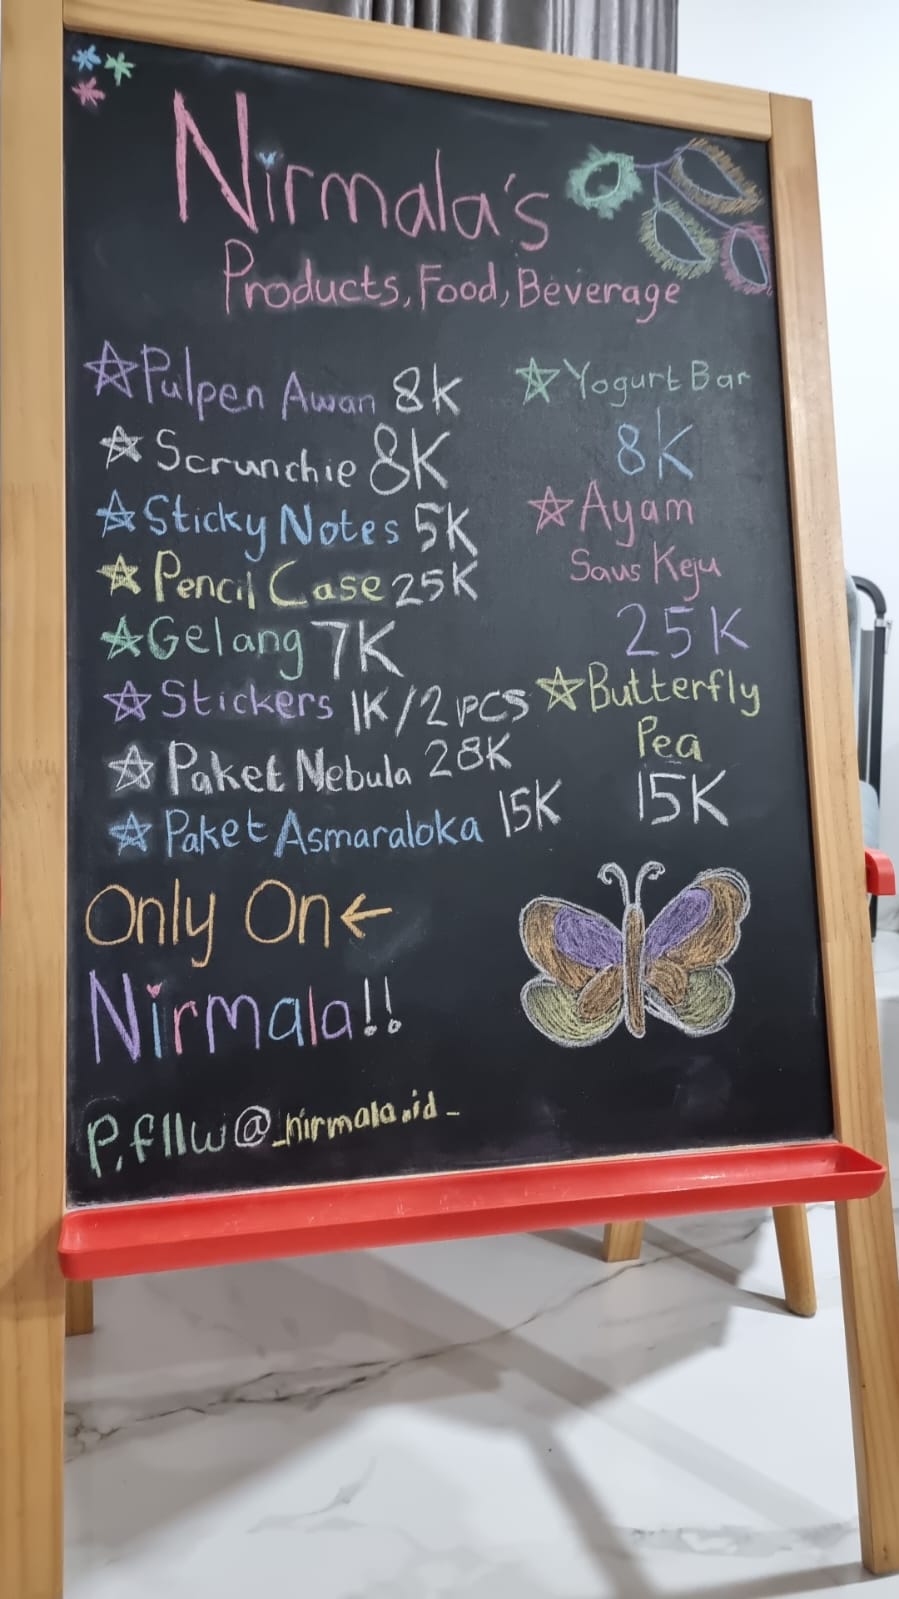 Nirmala's
Products, Food, Beverage
Pulpen Awan 8K
Scrunchie 8K
Sticky Notes 5K
Pencil Case 25K
Gelang 7K
Stickers 1K/2 PCS
Paket Nebula 28K
Paket Asmaraloka 15K
Yogurt Bar
8K
Ayam
Saus Keju
25K
Butterfly
Pea
15K
Only On←
Nirmala!!
P.fllw@_nirmala.id_